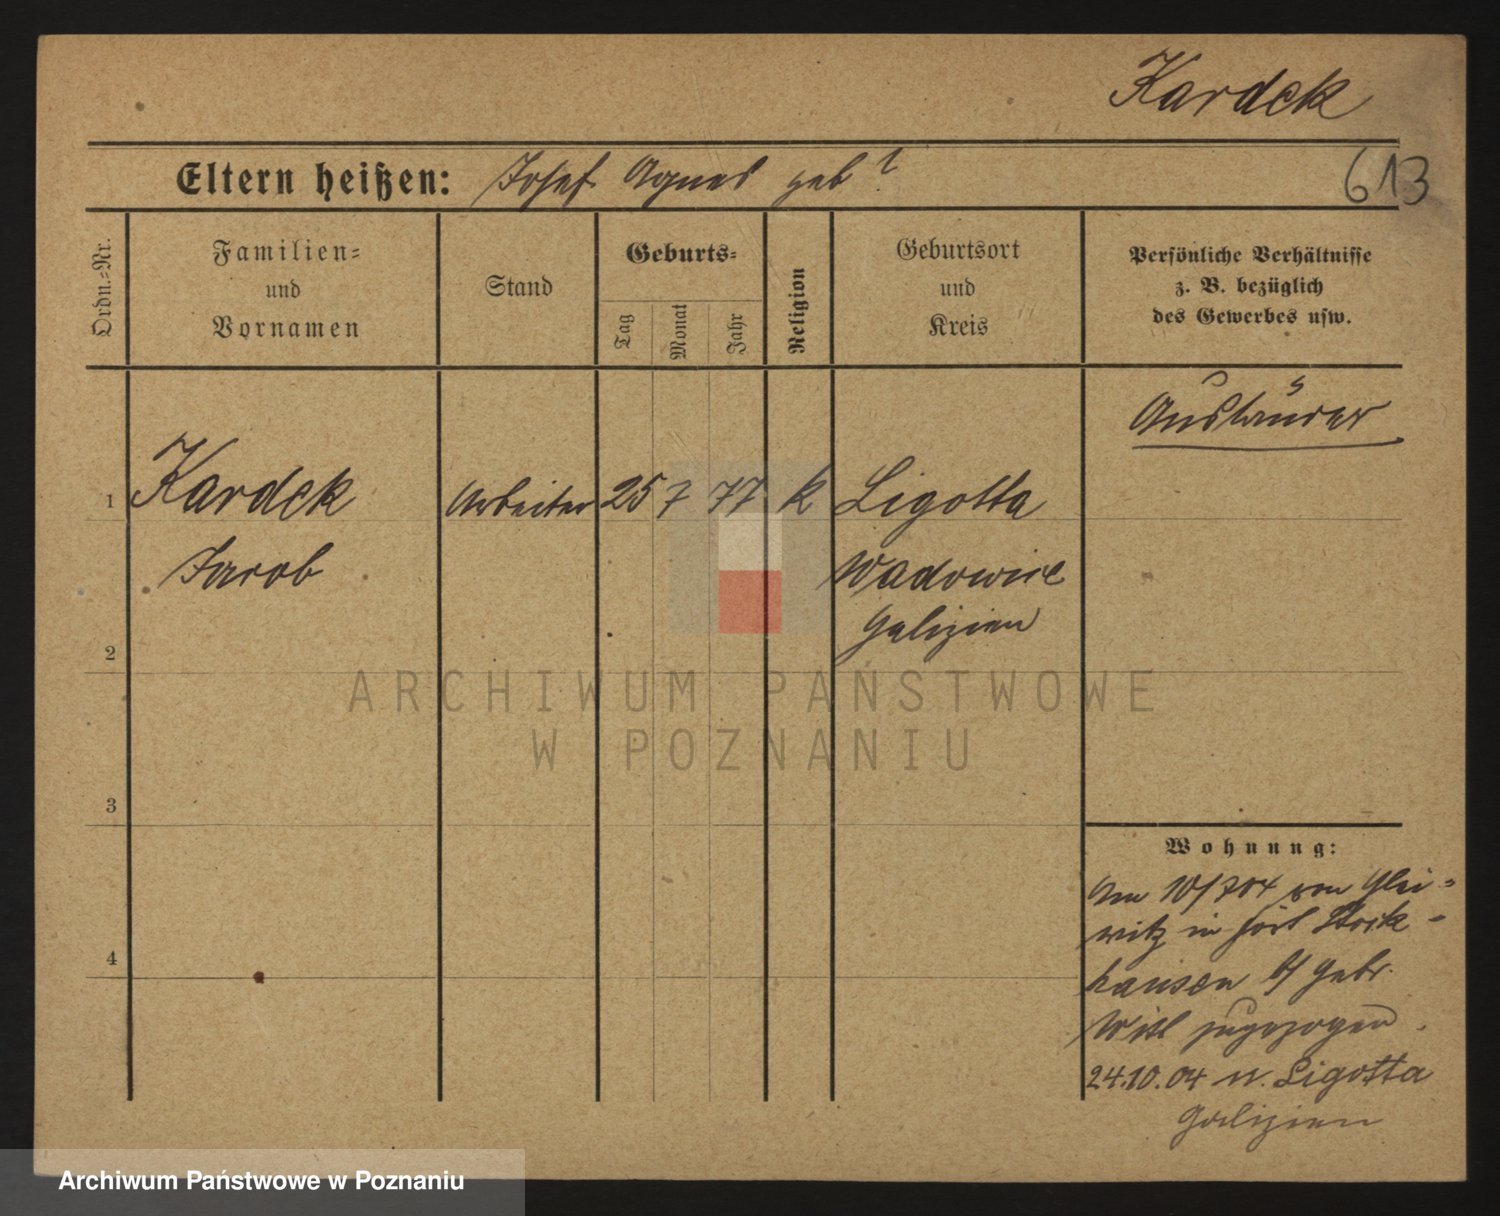 Kardek
Eltern heißen: Josef Agnes geb ?
613
Ordn.-Nr.
Familien-
und
Vornamen
Stand
Geburts-
Tag
Monat
Jahr
Religion
Geburtsort
und
Kreis
Persönliche Verhältnisse
z. B. bezüglich
des Gewerbes usw.
Ausländer
1 Kardek Arbeiter 25 7 77 k Ligotta
Jacob Wadowice
Galizien
2
ARCHIWUM PAŃSTWOWE
W POZNANIU
3
4
Wohnung:
Am 10/704 von Glei-
witz in hier
hausen b/ Gebr.
zugezogen.
24.10.04 n. Ligotta
Galizien
Archiwum Państwowe w Poznaniu